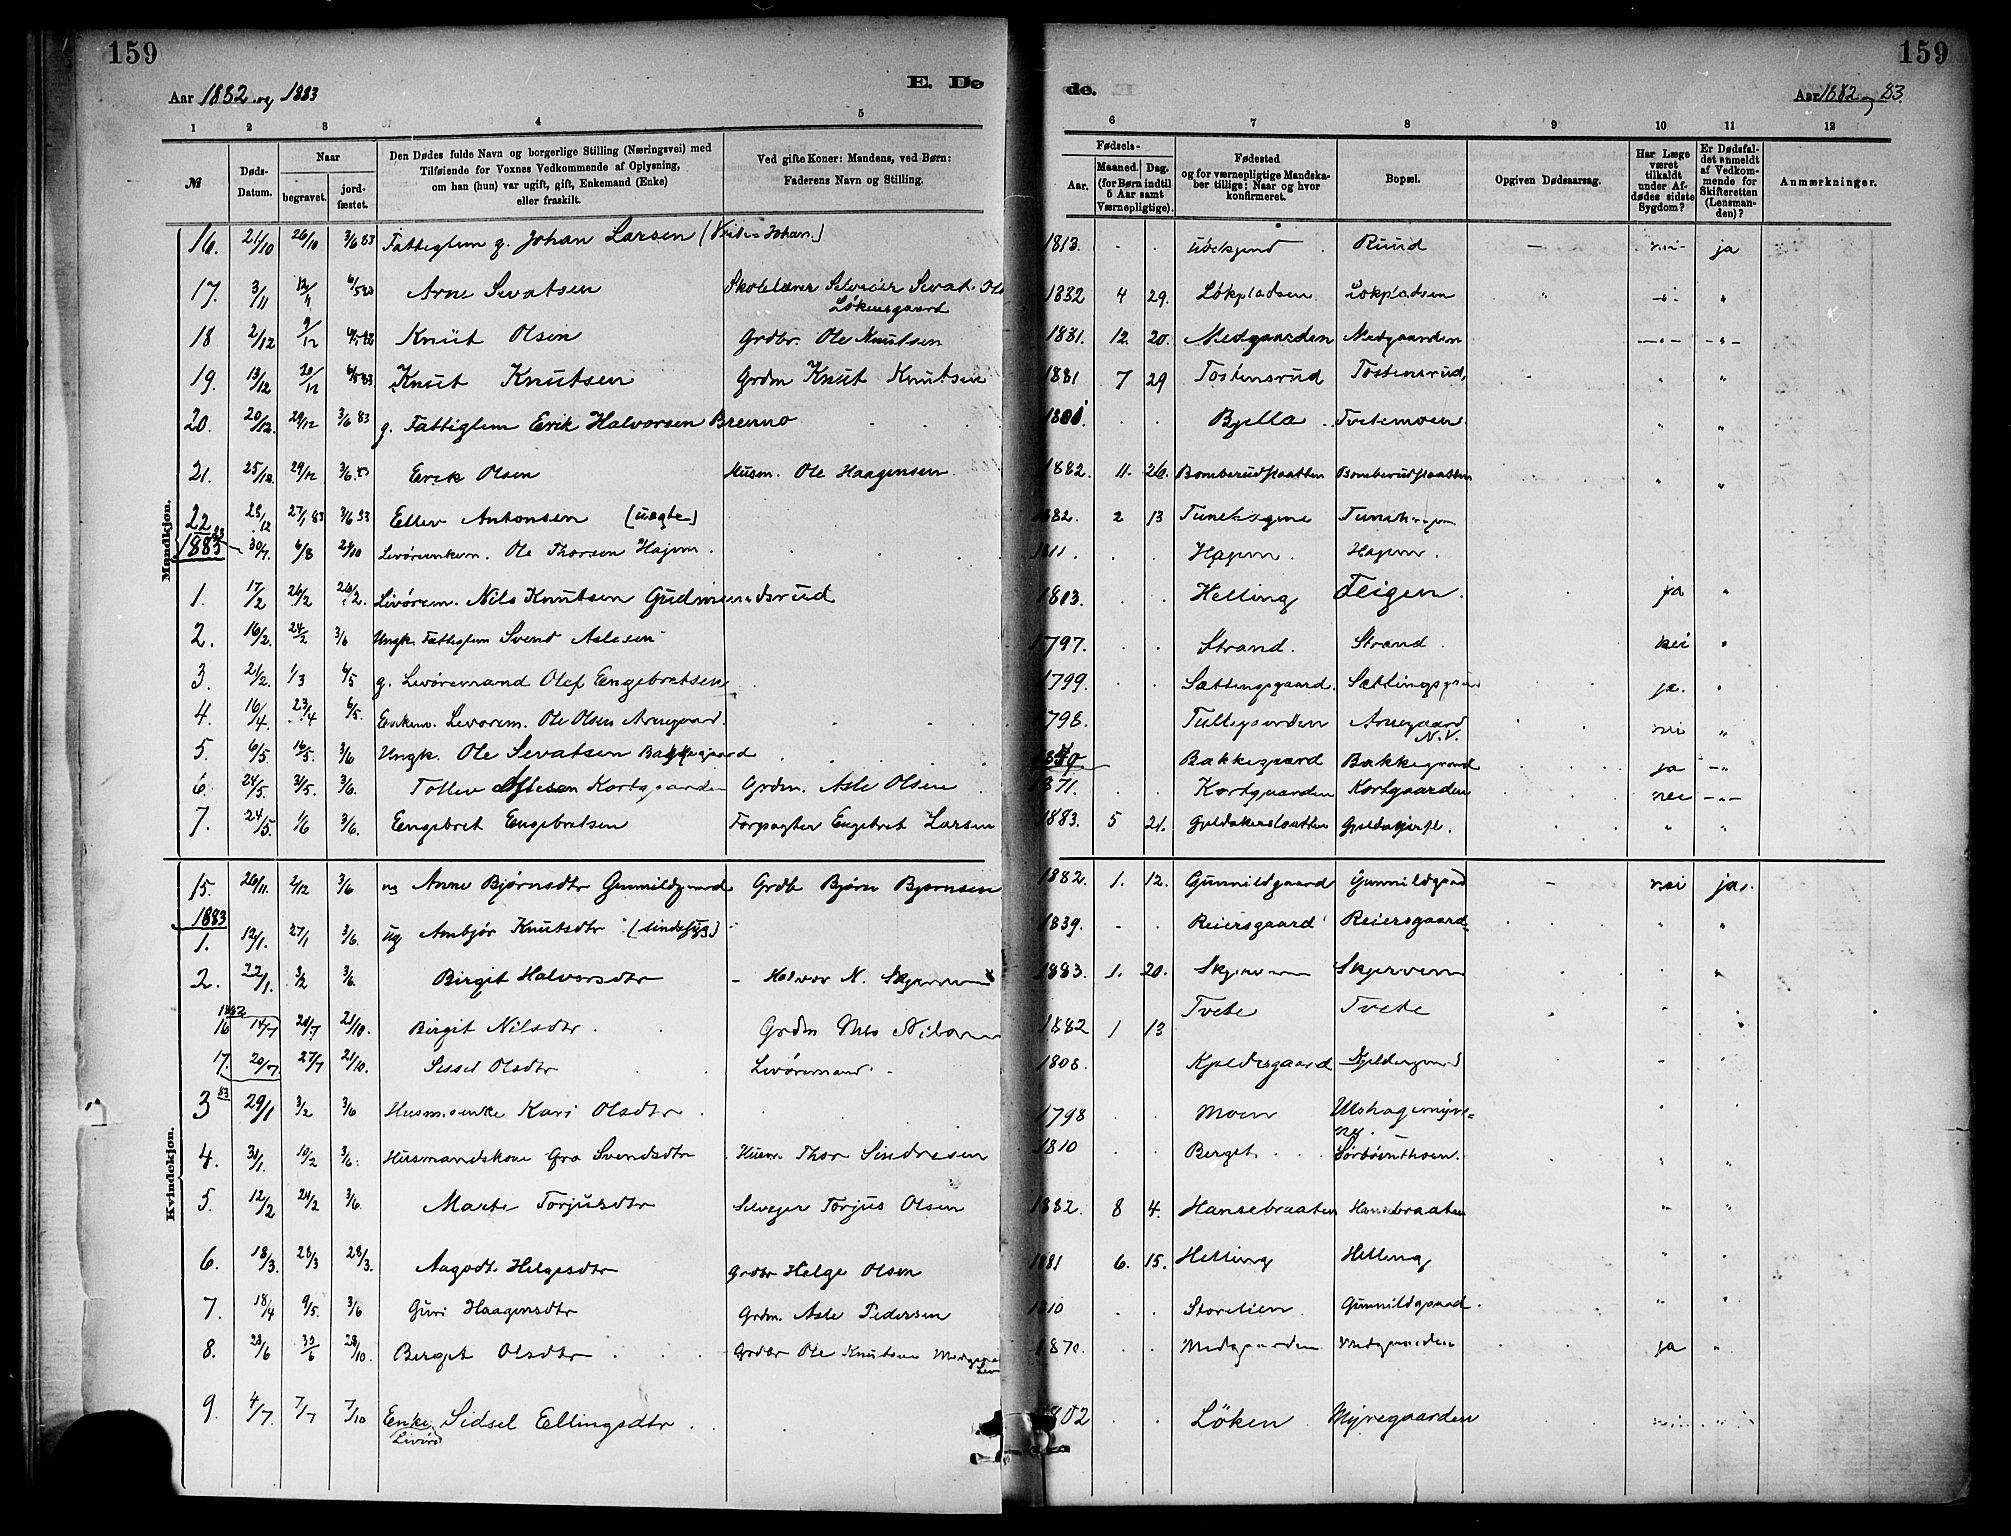 159
159
E. Dø
de.
Aar 1882 og 1883
Aar 1882 og 83.
1 2 3 4 5
6 7 8 9 10 11 12
№
Døds-
Datum.
Naar
begravet.
jord-
fæstet.
Den Dødes fulde Navn og borgerlige Stilling (Næringsvei) med
Tilføiende for Voxnes Vedkommende af Oplysning,
om han (hun) var ugift, gift, Enkemand (Enke)
eller fraskilt.
Ved gifte Koner: Mandens, ved Børn:
Faderens Navn og Stilling.
Fødsels-
Aar.
Maaned. Dag.
(for Børn indtil
5 Aar samt
Værnepligtige).
Fødested
og for værnepligtige Mandska-
ber tillige: Naar og hvor
konfirmeret.
Bopæl.
Opgiven Dødsaarsag.
Har Læge
været
tilkaldt
under Af-
dødes sidste
Sygdom?
Er Dødsfal-
det anmeldt
af Vedkom-
mende for
Skifteretten
(Lensman-
den)?
Anmærkninger.
Mandkjøn.
16. 21/10 26/10 3/6 83 Fattiglem g. Johan Larsen 1813. ubekjend Ruud nei ja
17. 3/11 12/11 6/5 83 Arne Sevatsen Skolelærer Selveier Sevat Løkensgaard 1882 4 29. Løkpladsen Løkpladsen
18 2/12 9/12 Knut Olsen Grdbr. Ole Knutsen 1881. 12. 20. Medgaarden Medgaarden
19. 13/12 20/12 6/5 83 Knut Knutsen Grdm Knut Knutsen 1881 7 29 Tostensrud Tostensrud
20. 20/12. 29/12 3/6 83 g. Fattiglem Erik Halvorsen Brenno Bjella Tveitemoen
21. 25/12. 29/12 3/6 83 Erik Olsen Husm. Ole Haagensen 1882. 11. 26. Bomberudflaatten Bomberudflaatten
22 28/12 27/1 83 3/6 83 Ellev Antonsen (uægte) 1882. 2 13
1883 30/7. 6/8 Livøremkem. Ole Thorsen Hajem. 1811. Hagem. Hagem.
1. 17/2 26/2 26/2. Livørem. Nils Knutsen Gudmundsrud 1813. Helling Teigen. ja
2. 16/2. 24/2 3/6 Ungk. Fattiglem Svend Aslesen 1797. Strand. Strand. nei
3. 21/2. 1/3 6/5 g. Livøremand Olef Engebretsen 1799. Sættingsgaard. ja.
4. 16/4. 23/4 6/5. Enkem. Livørem. Ole Olsen Arnegaard. 1798. Arnegaard N.V. nei
5. 6/5. 16/5. 3/6 Ungk. Ole Sevatsen Bakkegaard Bakkegaard Bakkegaard ja
6. 24/5. 31/5. 3/6. Tollev Aslesen Kortgaarden Grdm. Asle Olsen 1871. Kortgaarden Kortgaarden nei
7. 24/5. 1/6 3/6. Engebret Engebretsen Forpagter Engebret Larsen 1883. 5 21.
Kvindekjøn.
15. 26/11. 2/12 3/6 ug Anne Bjørnsdtr Gunnildgaard Grdb Bjørn Bjørnsen 1882. 1. 12. Gunnildgaard Gunnildgaard nei ja.
1883
1. 12/1. 27/1 3/6. ug Ambjør Knutsdtr (sindssyg) 1839. Reiersgaard Reiersgaard
2. 22/1. 3/2 3/6. Birgit Halvorsdtr Halvor N. Skjervem 1883. 1. 20. Skjervem Skjervem
1882
16 14/7 20/7 21/10. Birgit Nilsdtr Grdm Nils Nilsen 1882 1 13 Tvete Tvete
17. 20/7. 27/7 21/10. Sissel Olsdtr Livøremand 1808. Kjeldesgaard
3 83 29/1 3/2 3/6 Husm. enke Kari Olsdtr. 1798 Moen
4. 31/1. 10/2 3/6. Husmandskone Gro Svendsdtr Husm. Thor Sindresen 1810 Berget.
5. 12/2 24/2 3/6. Marte Torjusdtr Selveger Torjus Olsen 1882. 8 4. Hansebraaten Hansebraaten
6. 18/3. 28/3 28/3. Aagodt. Helgesdtr Grdbr Helge Olsen 1881 6. 15. Helling Helling
7. 18/4 9/5. 3/6 Guri Haagensdtr Grdm. Asle Pedersen 1810 Storelien. Gunnildgaard.
8. 23/6 30/6 28/10. Berget Olsdtr Grdbr Ole Knutsen Medgaarden Medgaarden ja
9. 4/7. 7/7 7/10 Enke. Sidsel Ellingsdtr. 1802 Løken Myregaarden